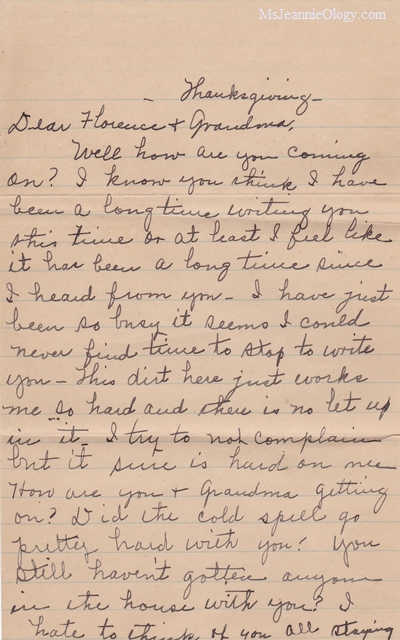 MsJeannieOlogy.com
- Thanksgiving -
Dear Florence & Grandma,
Well how are you coming
on? I know you think I have
been a long time writing you
this time or at least I feel like
it has been a long time since
I heard from you - I have just
been so busy it seems I could
never find time to stop to write
you - This dirt here just works
me so hard and there is no let up
in it - I try to not complain
but it sure is hard on me
How are you & Grandma getting
on? Did the cold spell go
pretty hard with you? You
still haven't gotten anyone
in the house with you? I
hate to think of you all staying